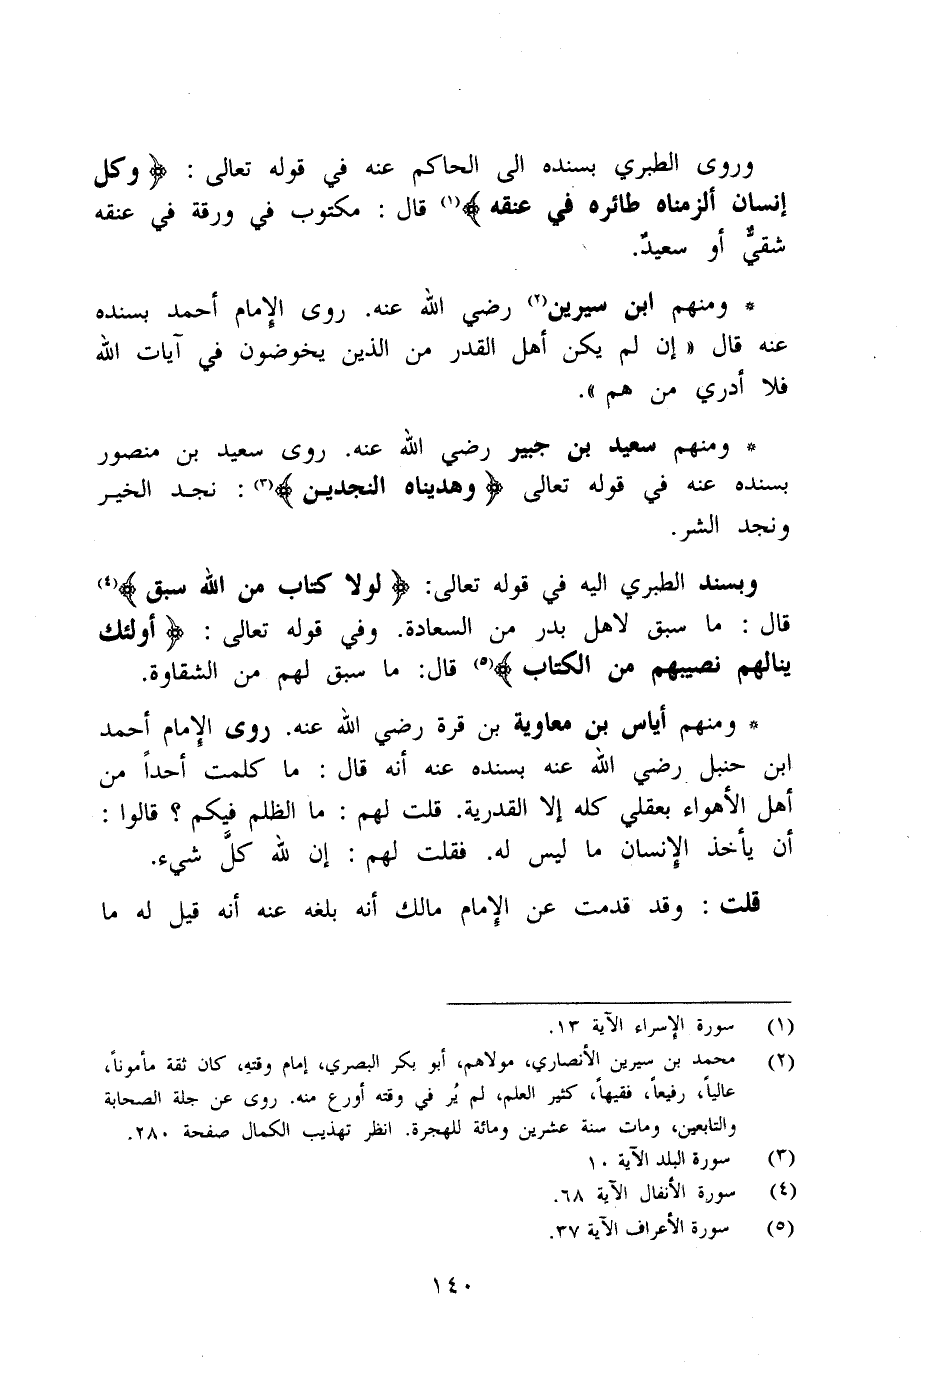 وروى الطبري بسنده الى الحاكم عنه في قوله تعالى : ﴿ وكل
إنسان ألزمناه طائره في عنقه ﴾(١) قال : مكتوب في ورقة في عنقه
شقيٌّ أو سعيدٌ.
* ومنهم ابن سيرين(٢) رضي الله عنه. روى الإمام أحمد بسنده
عنه قال « إن لم يكن أهل القدر من الذين يخوضون في آيات الله
فلا أدري من هم ».
* ومنهم سعيد بن جبير رضي الله عنه. روى سعيد بن منصور
بسنده عنه في قوله تعالى ﴿ وهديناه النجدين ﴾(٣) : نجد الخير
ونجد الشر.
وبسند الطبري اليه في قوله تعالى: ﴿ لولا كتاب من الله سبق ﴾(٤)
قال : ما سبق لاهل بدر من السعادة. وفي قوله تعالى : ﴿ أولئك
ينالهم نصيبهم من الكتاب ﴾(٥) قال: ما سبق لهم من الشقاوة.
* ومنهم أياس بن معاوية بن قرة رضي الله عنه. روى الإمام أحمد
ابن حنبل رضي الله عنه بسنده عنه أنه قال : ما كلمت أحداً من
أهل الأهواء بعقلي كله إلا القدرية. قلت لهم : ما الظلم فيكم ؟ قالوا :
أن يأخذ الإنسان ما ليس له. فقلت لهم : إن لله كلَّ شيء.
قلت : وقد قدمت عن الإمام مالك أنه بلغه عنه أنه قيل له ما
(١) سورة الإسراء الآية ١٣.
(٢) محمد بن سيرين الأنصاري، مولاهم، أبو بكر البصري، إمام وقته، كان ثقة مأموناً،
عالياً، رفيعاً، فقيهاً، كثير العلم، لم يُر في وقته أورع منه. روى عن جلة الصحابة
والتابعين، ومات سنة عشرين ومائة للهجرة. انظر تهذيب الكمال صفحة ٢٨٠.
(٣) سورة البلد الآية ١٠
(٤) سورة الأنفال الآية ٦٨.
(٥) سورة الأعراف الآية ٣٧.
١٤٠